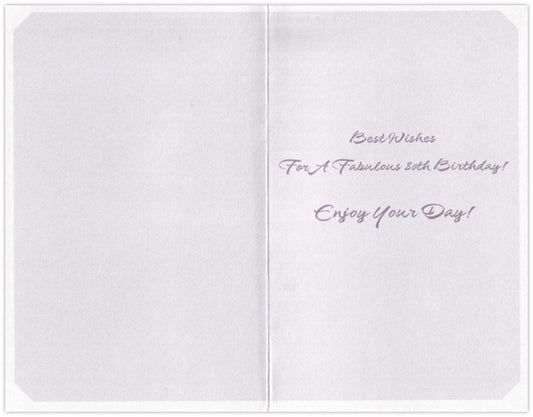 Best Wishes
For A Fabulous 80th Birthday!
Enjoy Your Day!